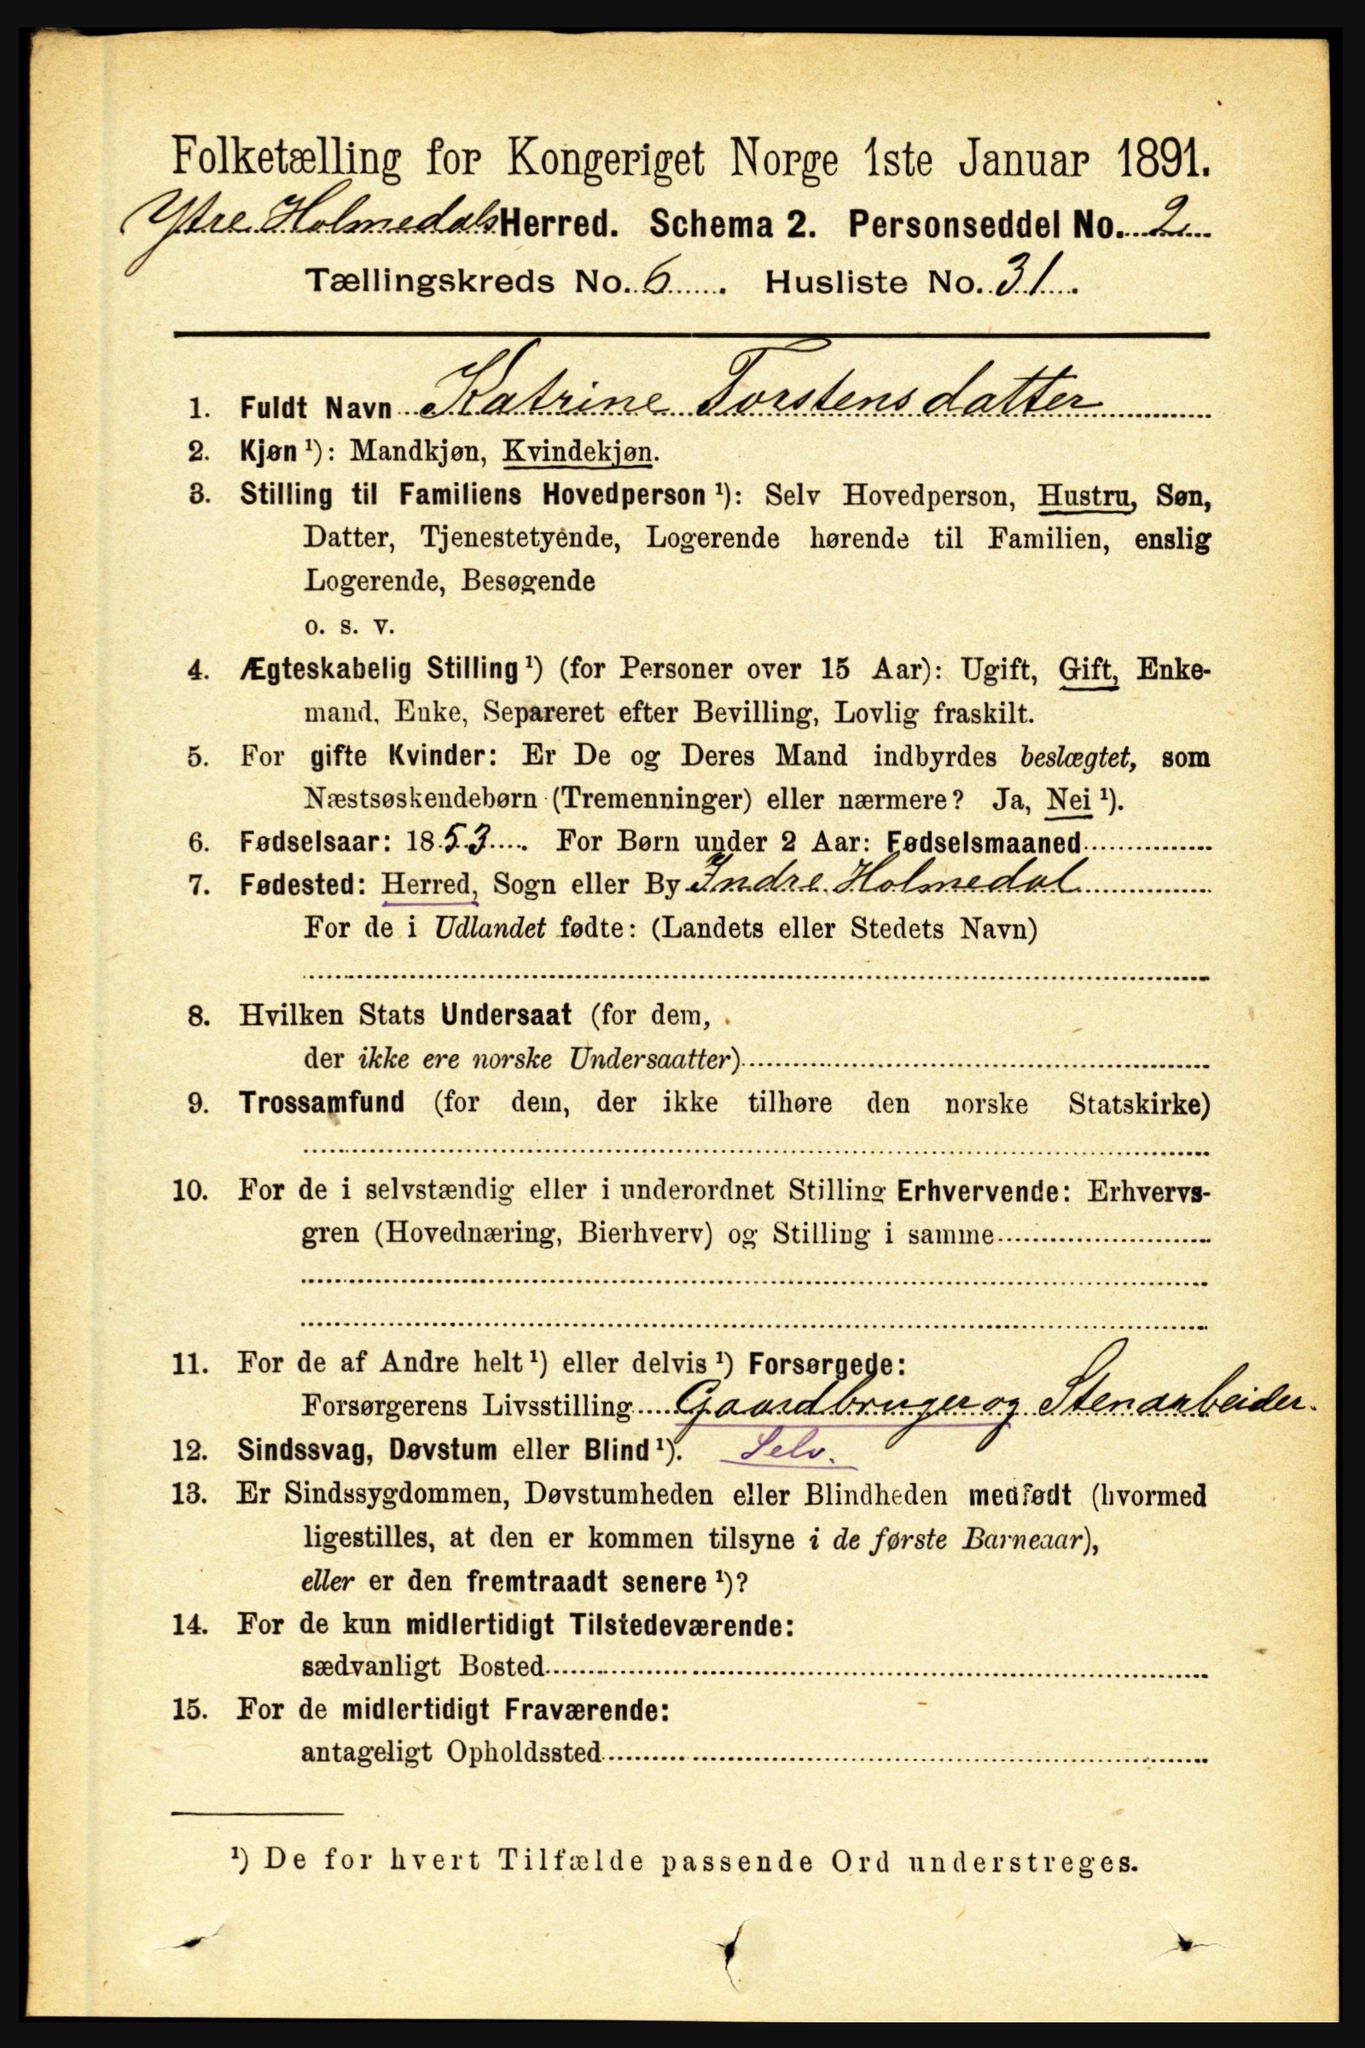 Folketælling for Kongeriget Norge 1ste Januar 1891.
Ytre Holmedals Herred. Schema 2. Personseddel No. 2
Tællingskreds No. 6. Husliste No. 31.
1. Fuldt Navn Katrine Torstensdatter
2. Kjøn ¹): Mandkjøn, Kvindekjøn.
3. Stilling til Familiens Hovedperson ¹): Selv Hovedperson, Hustru, Søn,
Datter, Tjenestetyende, Logerende hørende til Familien, enslig
Logerende, Besøgende
o. s. v.
4. Ægteskabelig Stilling ¹) (for Personer over 15 Aar): Ugift, Gift, Enke-
mand, Enke, Separeret efter Bevilling, Lovlig fraskilt.
5. For gifte Kvinder: Er De og Deres Mand indbyrdes beslægtet, som
Næstsøskendebørn (Tremenninger) eller nærmere? Ja, Nei ¹).
6. Fødselsaar: 1853. For Børn under 2 Aar: Fødselsmaaned
7. Fødested: Herred, Sogn eller By Indre Holmedal
For de i Udlandet fødte: (Landets eller Stedets Navn)
8. Hvilken Stats Undersaat (for dem,
der ikke ere norske Undersaatter)
9. Trossamfund (for dem, der ikke tilhøre den norske Statskirke)
10. For de i selvstændig eller i underordnet Stilling Erhvervende: Erhvervs-
gren (Hovednæring, Bierhverv) og Stilling i samme
11. For de af Andre helt ¹) eller delvis ¹) Forsørgede:
Forsørgerens Livsstilling Gaardbruger og Stenarbeider.
12. Sindssvag, Døvstum eller Blind ¹). Selv.
13. Er Sindssygdommen, Døvstumheden eller Blindheden medfødt (hvormed
ligestilles, at den er kommen tilsyne i de første Barneaar),
eller er den fremtraadt senere ¹)?
14. For de kun midlertidigt Tilstedeværende:
sædvanligt Bosted
15. For de midlertidigt Fraværende:
antageligt Opholdssted
¹) De for hvert Tilfælde passende Ord understreges.